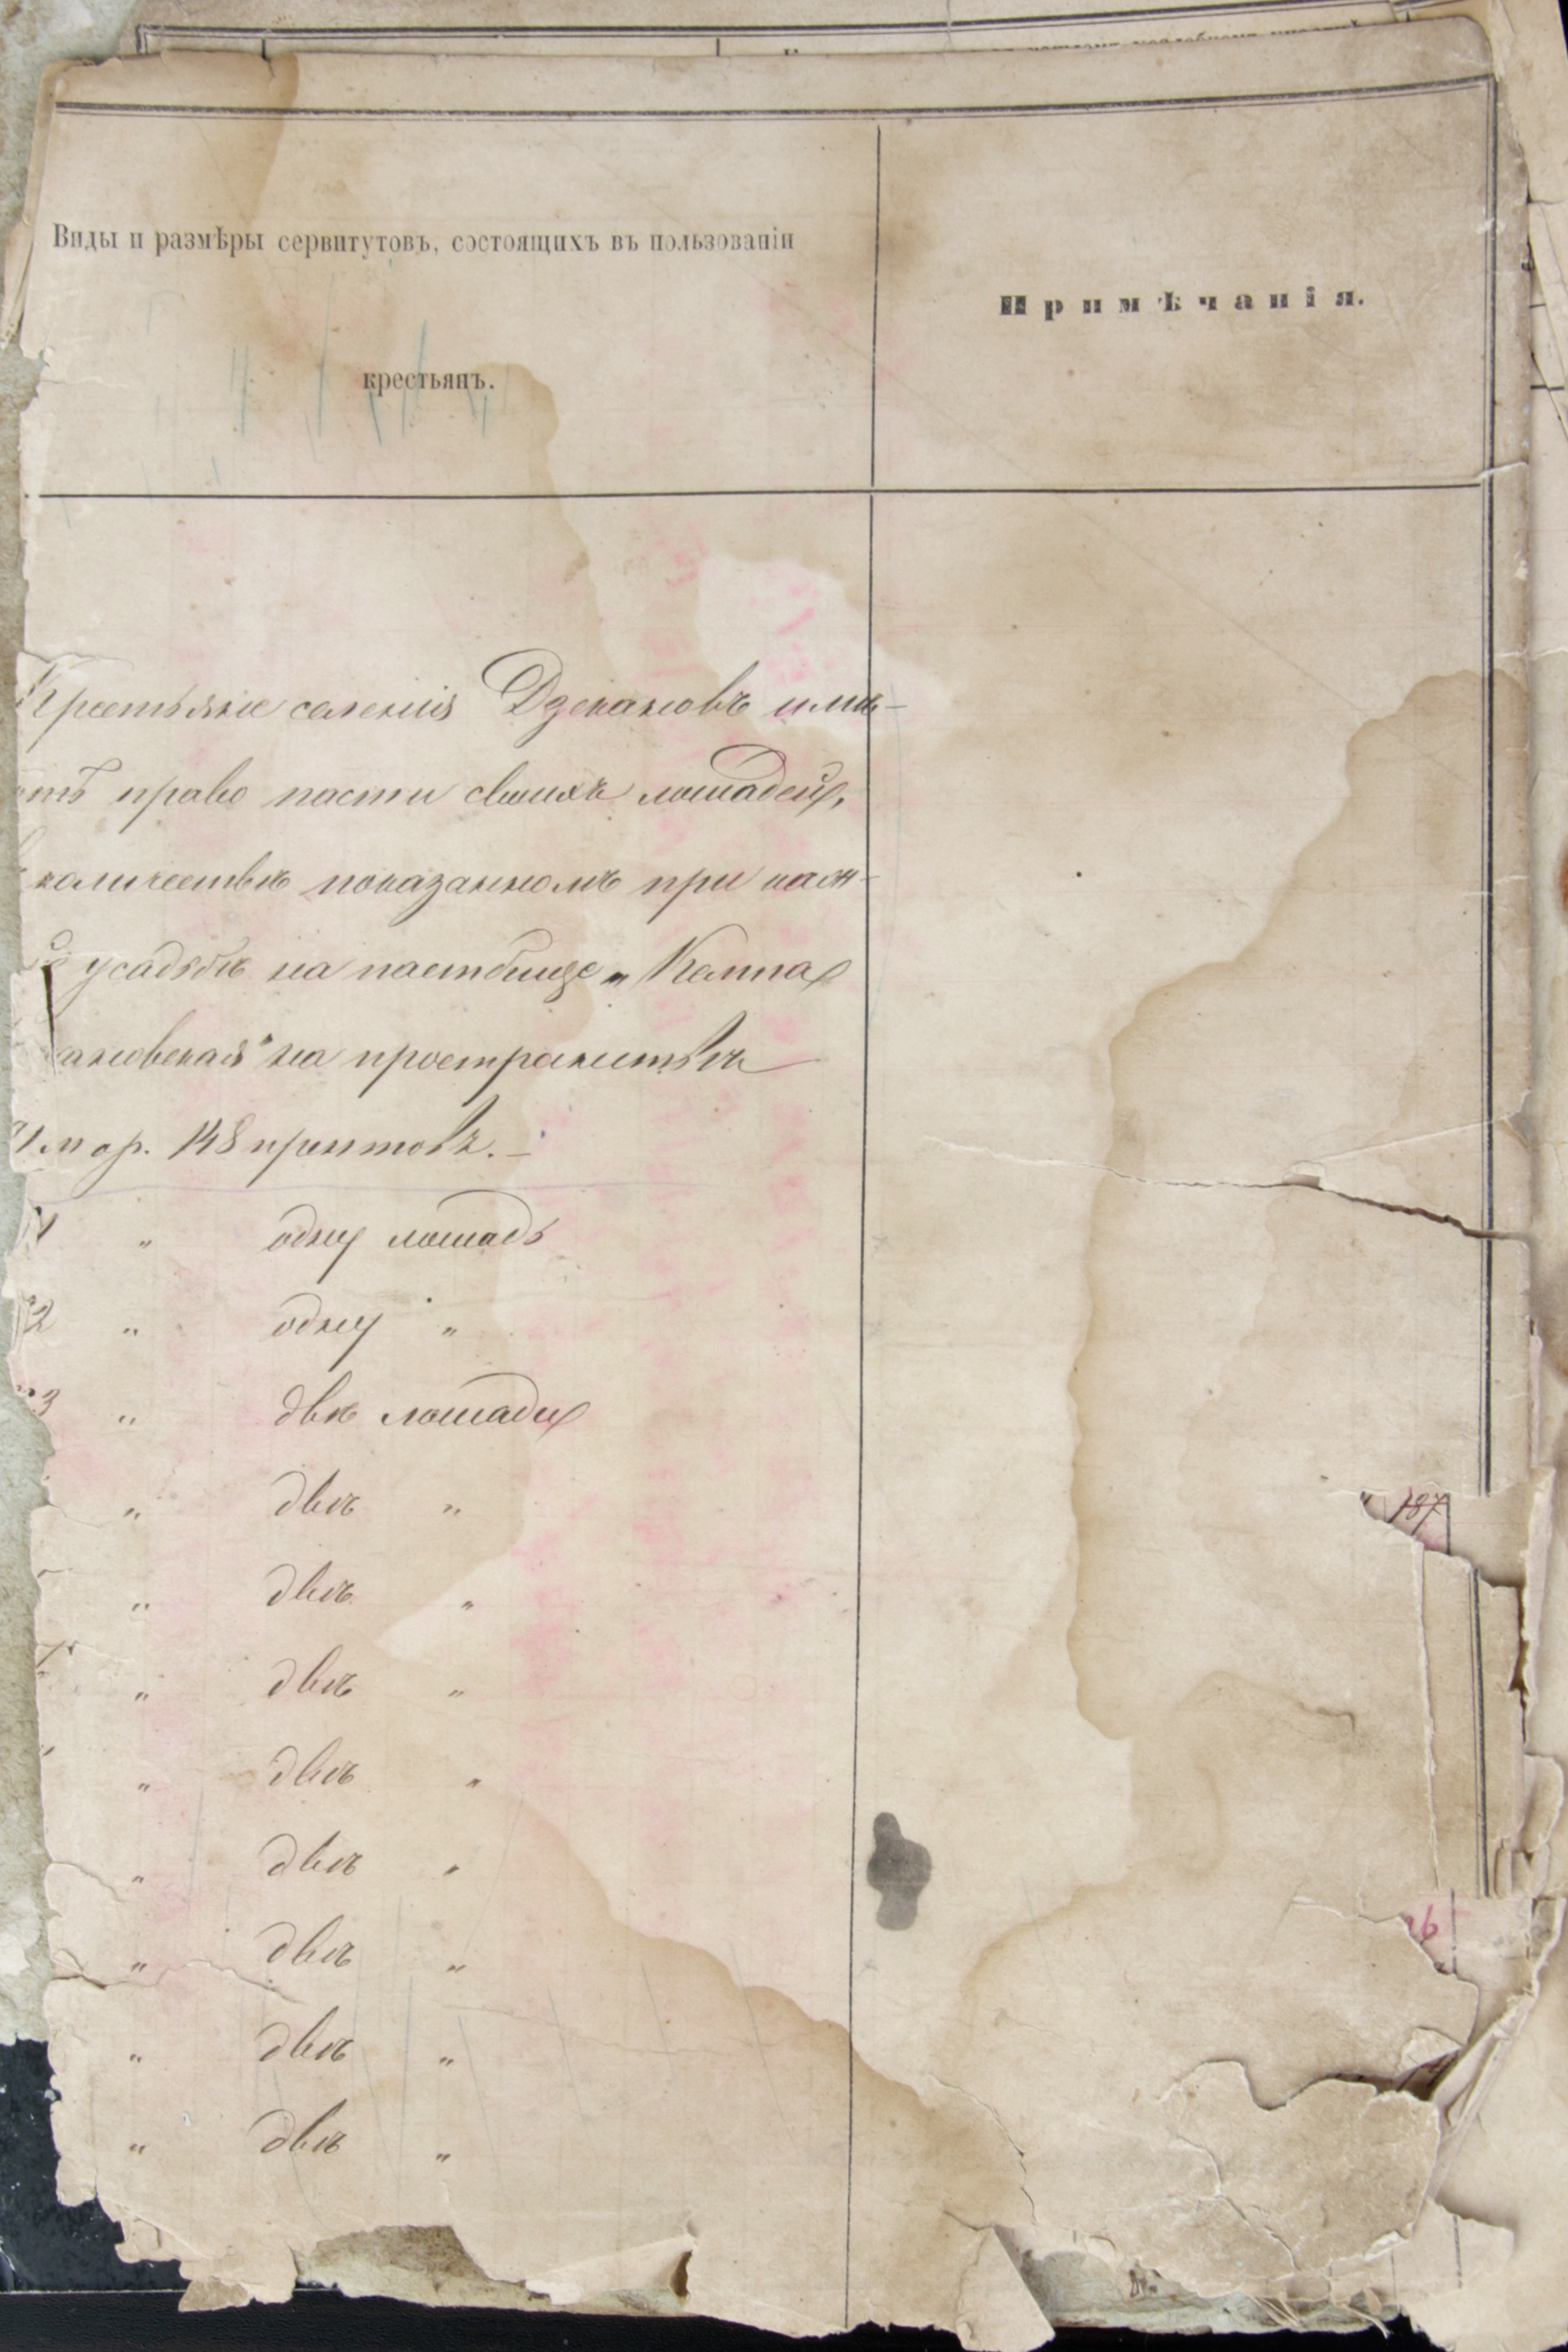 Виды и размѣры сервитутовъ, состоящихъ въ пользованіи
крестьянъ.
Примѣчанія.
Крестьяне селенія Дзекановъ имѣ-
ютъ право пасти своихъ лошадей,
количествѣ показанномъ при каж-
усадьбѣ на пастбище „Кемпа
ановская" на пространствѣ
мор. 148 прентовъ.—
1 „ одну лошадь
2 „ одну „
3 „ двѣ лошади
„ двѣ „
„ двѣ „
„ двѣ „
„ двѣ „
„ двѣ „
„ двѣ „
„ двѣ „
„ двѣ „
187
26